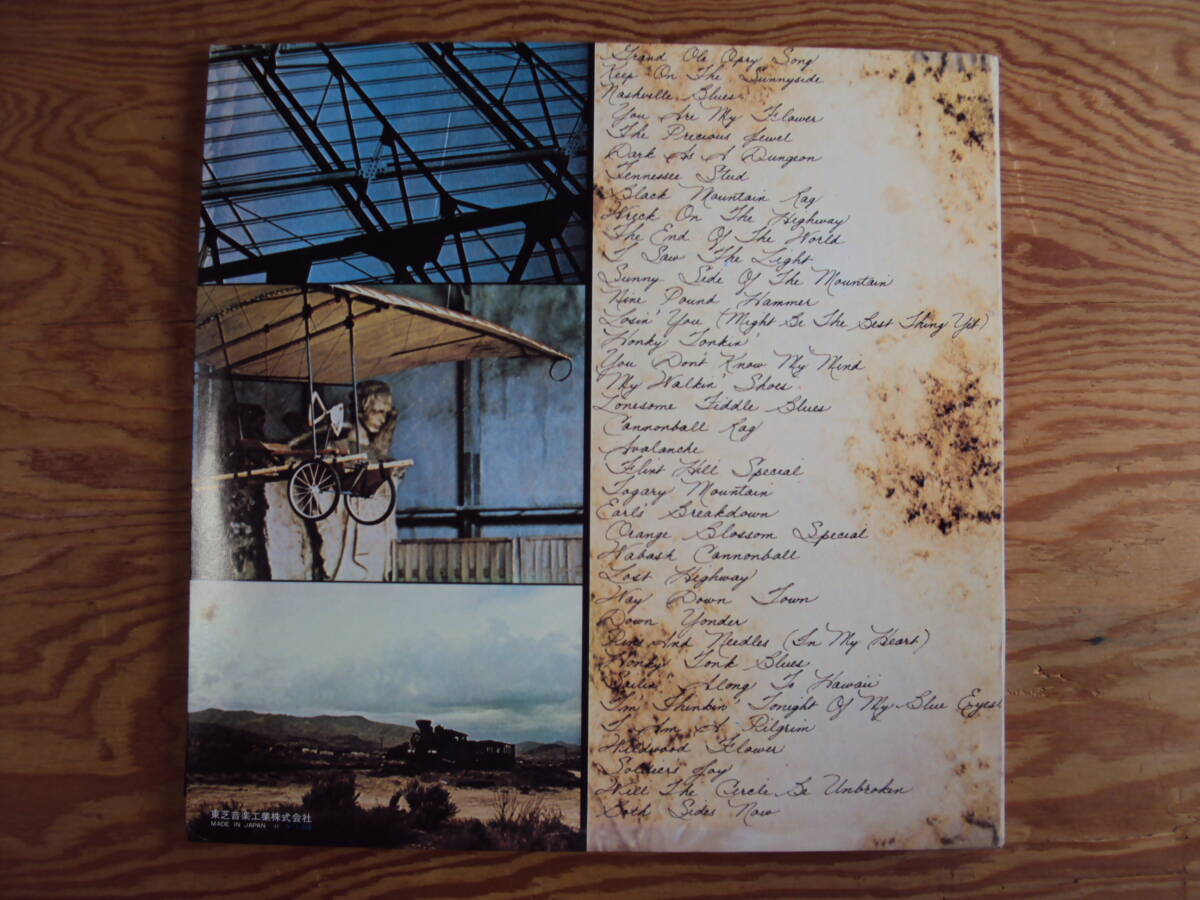 Grand Ole Opry Song
Keep On The Sunnyside
Nashville Blues
You Are My Flower
The Precious Jewel
Dark As A Dungeon
Tennessee Stud
Black Mountain Rag
Wreck On The Highway
The End Of The World
I Saw The Light
Sunny Side Of The Mountain
Nine Pound Hammer
Losin' You (Might Be The Best Thing Yet)
Honky Tonkin'
You Don't Know My Mind
My Walkin' Shoes
Lonesome Fiddle Blues
Cannonball Rag
Avalanche
Flint Hill Special
Togary Mountain
Earls' Breakdown
Orange Blossom Special
Wabash Cannonball
Lost Highway
Way Down Town
Down Yonder
Pins And Needles (In My Heart)
Honky Tonk Blues
Sailin' Along To Hawaii
I'm Thinkin' Tonight Of My Blue Eyes
I Am A Pilgrim
Wildwood Flower
Soldiers Joy
Will The Circle Be Unbroken
Both Sides Now
東芝音楽工業株式会社
MADE IN JAPAN